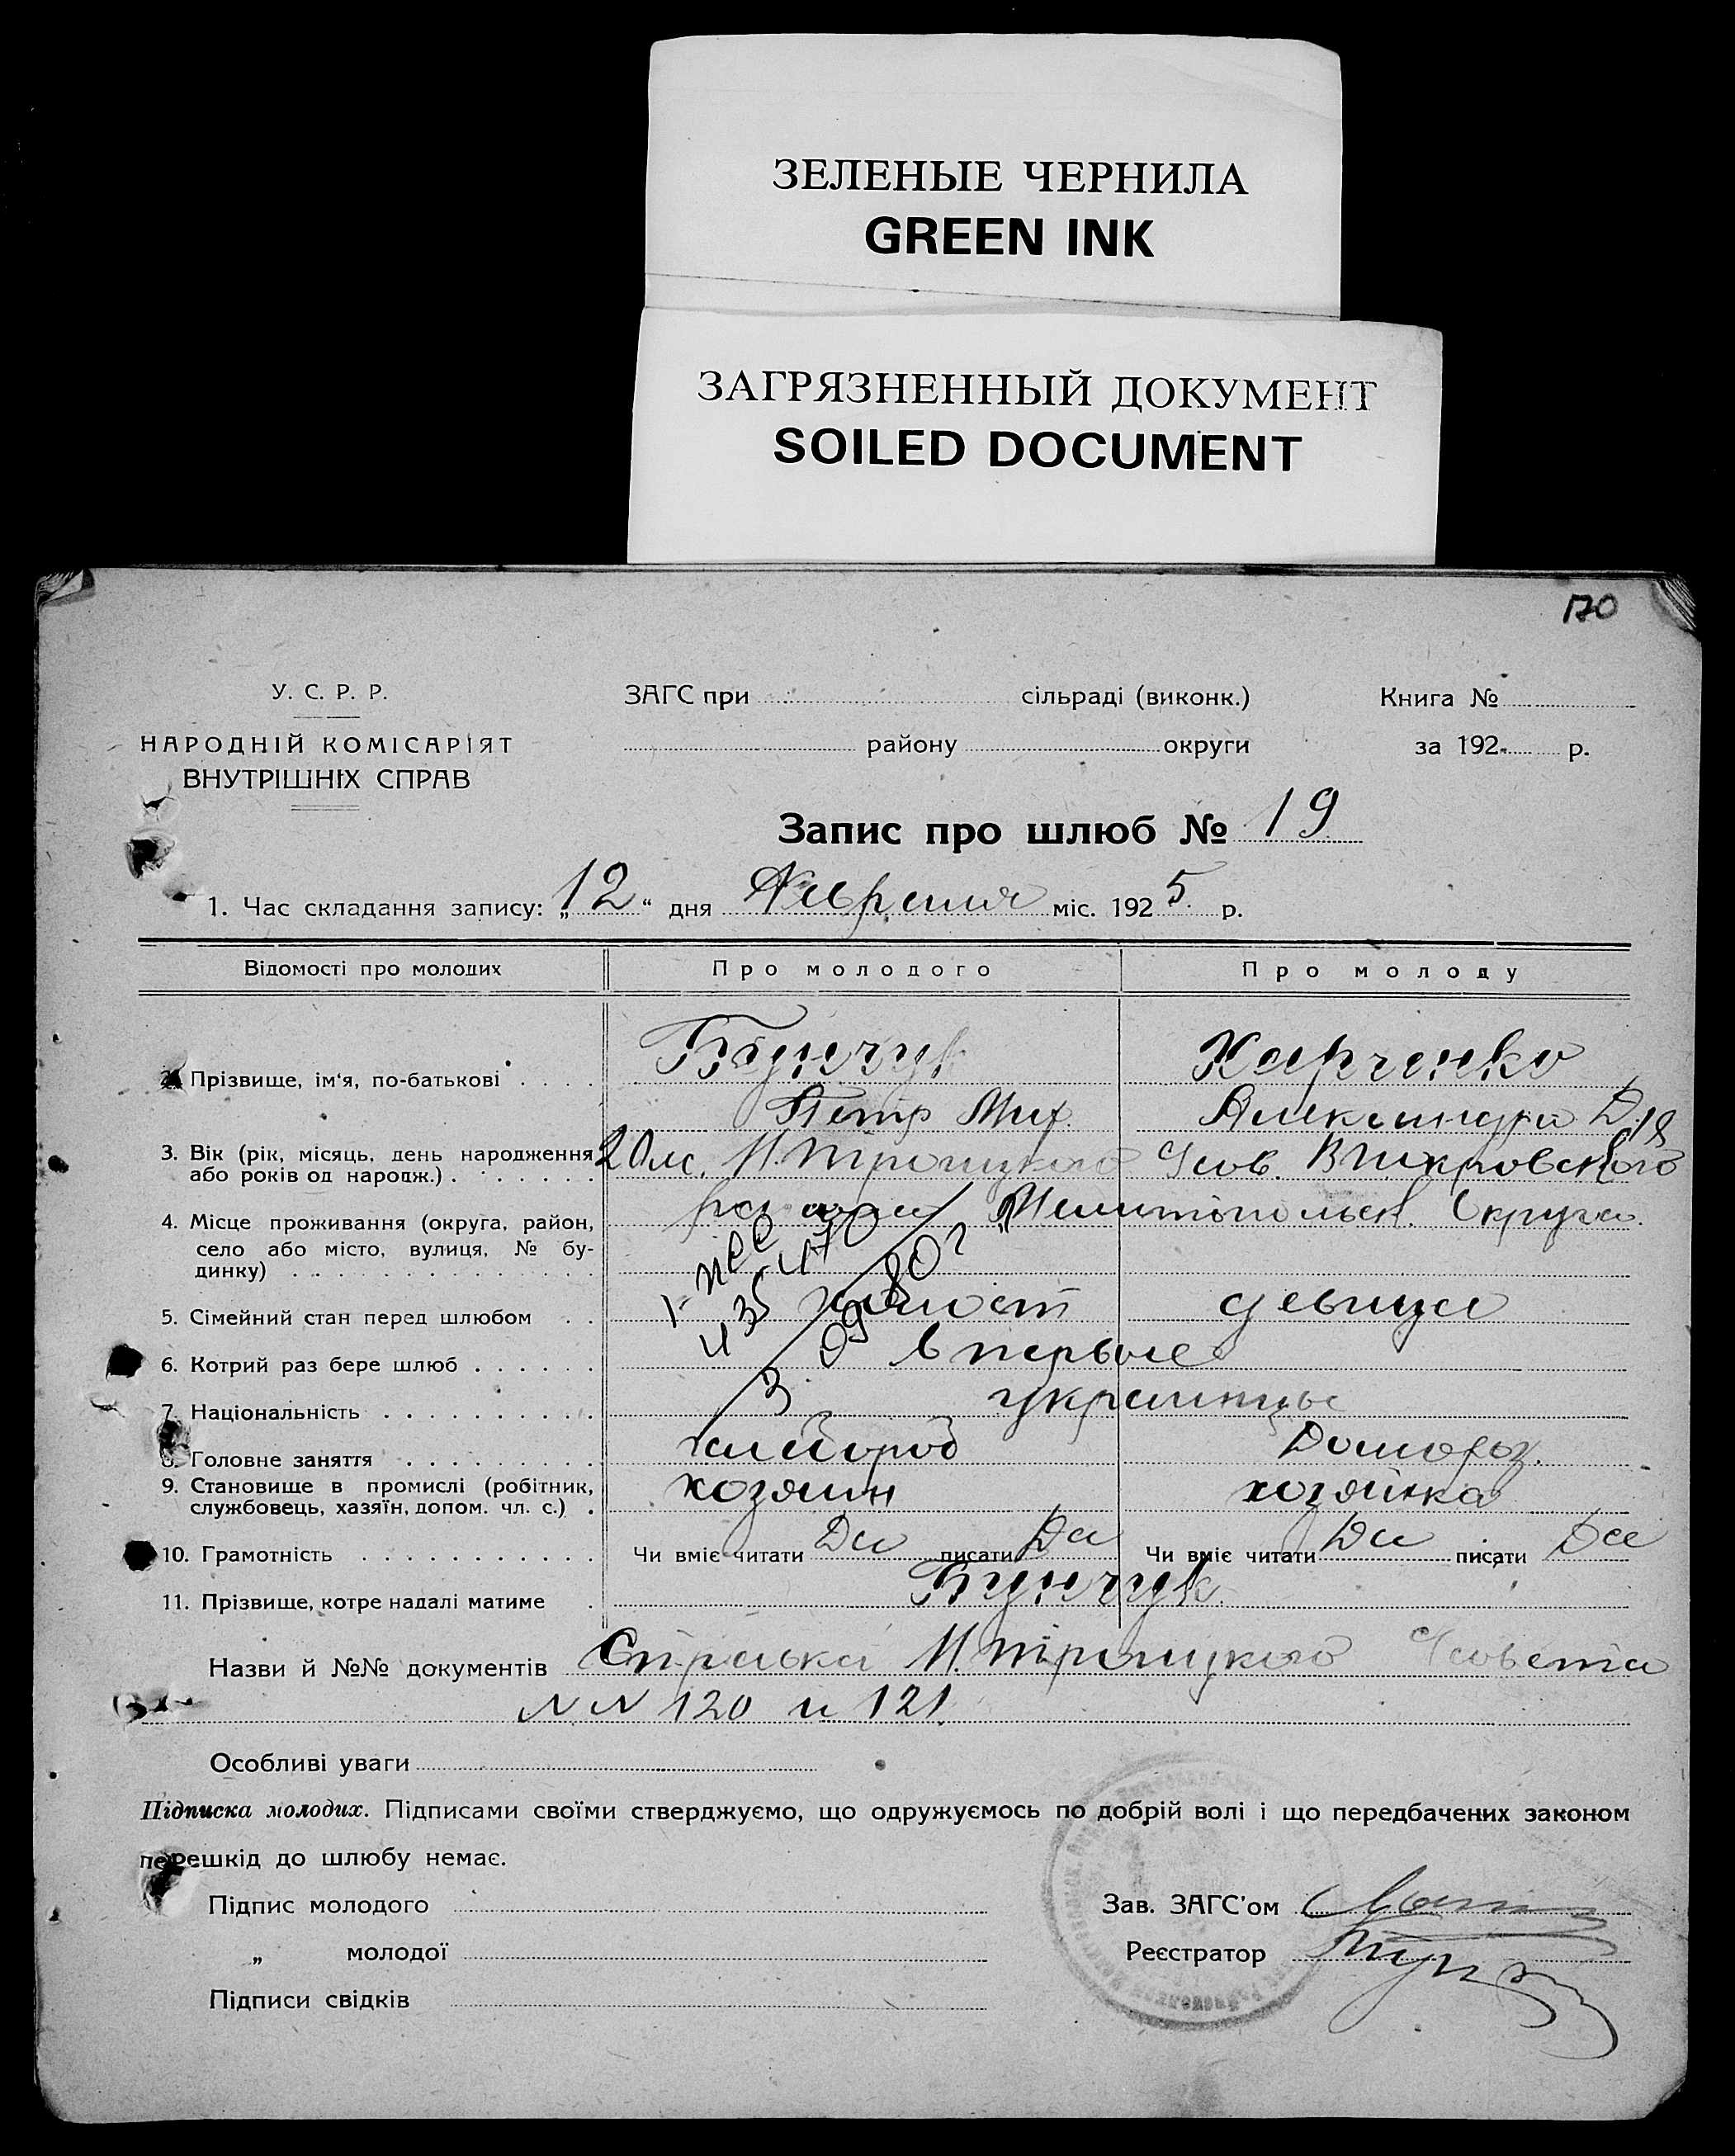 ЗЕЛЕНЫЕ ЧЕРНИЛА
GREEN INK
ЗАГРЯЗНЕННЫЙ ДОКУМЕНТ
SOILED DOCUMENT
170
У. С. Р. Р.
НАРОДНІЙ КОМІСАРІЯТ
ВНУТРІШНІХ СПРАВ
ЗАГС при сільраді (виконк.) Книга №
району округи за 192 р.
Запис про шлюб № 19
1. Час складання запису: „12“ дня Февраля міс. 1925 р.
Відомості про молодих Про молодого Про молоду
2. Прізвище, ім'я, по-батькові Бунчук Харченко
Петр Мих. Александра Д. 18
3. Вік (рік, місяць, день народження 20 лс. Н. Троицкого Усов. В Покровского
або років од народж.)
района Мелитопольск. Округа.
4. Місце проживання (округа, район,
село або місто, вулиця, № бу-
динку)
5. Сімейний стан перед шлюбом холост девица
6. Котрий раз бере шлюб впервые
7. Національність украинцы
8. Головне заняття хлебороб Домохоз.
9. Становище в промислі (робітник, хозяин хозяйка
службовець, хазяїн, допом. чл. с.)
10. Грамотність Чи вміє читати Да писати Да Чи вміє читати Да писати Да
11. Прізвище, котре надалі матиме Бунчук.
Назви й №№ документів Справка Н. Троицкого Усовета
N N 120 и 121.
Особливі уваги
Підписка молодих. Підписами своїми стверджуємо, що одружуємось по добрій волі і що передбачених законом
перешкід до шлюбу немає.
Підпис молодого Зав. ЗАГС'ом
„ молодої Реєстратор
Підписи свідків